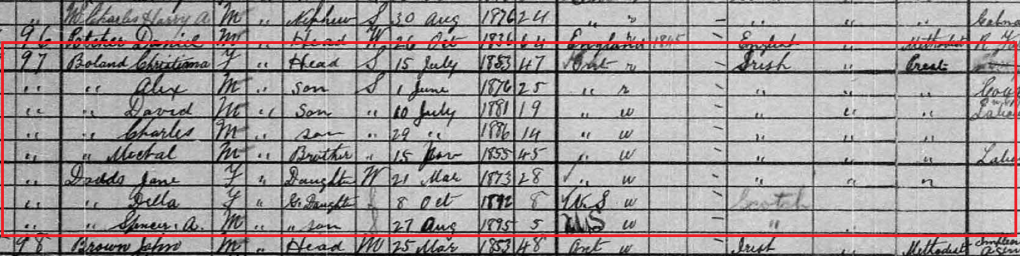 W. Charles Harry A. M " Nephew S 30 Aug 1876 24 " r " " "
96 Daniel M " Head W 26 Oct 1836 64 England 1845 English " Methodist
97 Boland Christiana F " Head S 15 July 1853 47 Ont r Irish " Presb
" " Alex M " son S 1 June 1876 25 " r " " "
" " David M " Son " 10 July 1881 19 " w " " "
" " Charles M " son " 29 " 1886 14 " w " " "
" " Michal M " Brother " 15 Nov 1855 45 " w " " "
" Dodds Jane F " Daughter W 21 Mar 1873 28 " w " " "
" " Della F " G. Daughter 8 Oct 1892 8 U S w Scotch
" " Spencer A. M " " son 27 Aug 1895 5 U S w "
98 Brown John M " Head M 25 Mar 1853 48 Ont w Irish " Methodist